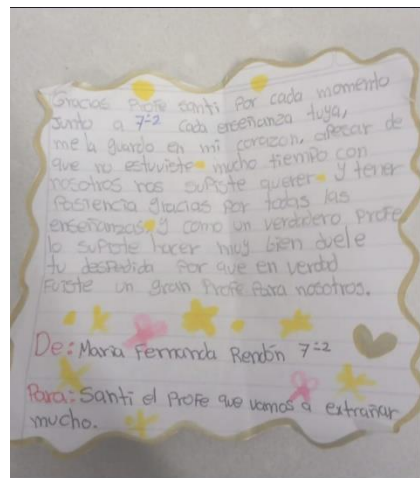 Gracias Profe santi Por cada momento
Junto a 7-2 Cada enseñanza tuya,
me la guardo en mi corazon, apesar de
que no estuviste mucho tiempo con
nosotros nos supiste querer y tener
Pasiencia gracias Por todas las
enseñanzas y como un verdadero Profe
lo supiste hacer muy bien duele
tu despedida Por que en verdad
Fuiste un gran Profe Para nosotros.
De: Maria Fernanda Rendón 7-2
Para: Santi el Profe que vamos a extrañar
mucho.